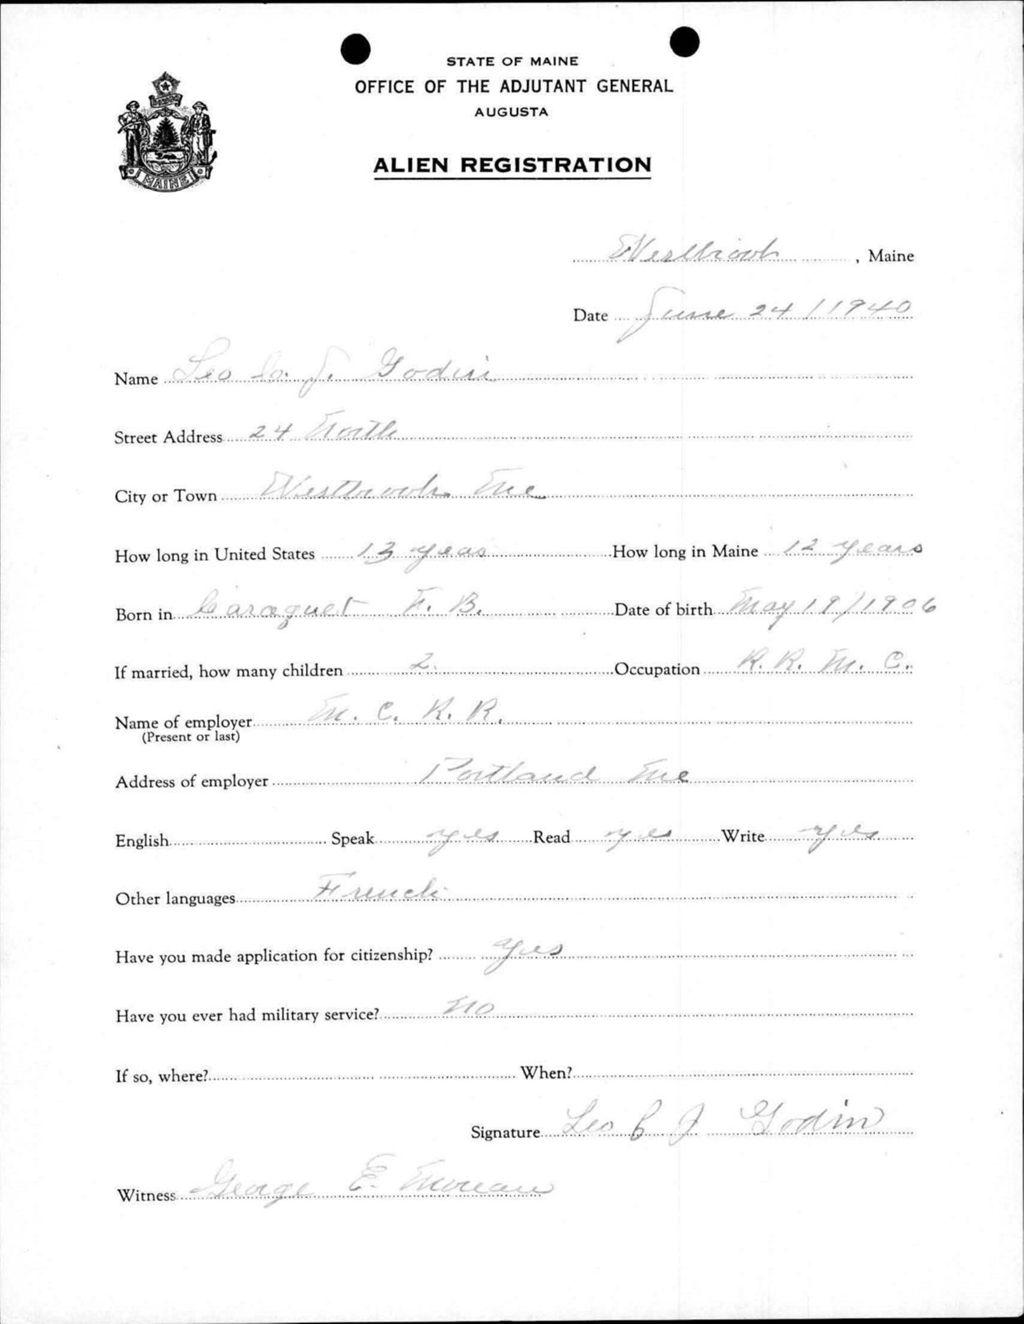 STATE OF MAINE
OFFICE OF THE ADJUTANT GENERAL
AUGUSTA
MAINE
ALIEN REGISTRATION
Westbrook, Maine
Date June 24 / 1940
Name Leo J. Godin
Street Address 24 North
City or Town Westbrook Me
How long in United States 13 years How long in Maine 12 years
Born in Caraquet N. B. Date of birth May 19/1906
If married, how many children 2 Occupation R. R. M. C.
Name of employer M. C. R. R.
(Present or last)
Address of employer Portland Me
English Speak yes Read yes Write yes
Other languages French
Have you made application for citizenship? yes
Have you ever had military service? no
If so, where? When?
Signature Leo C J Godin
Witness George E. Moreau